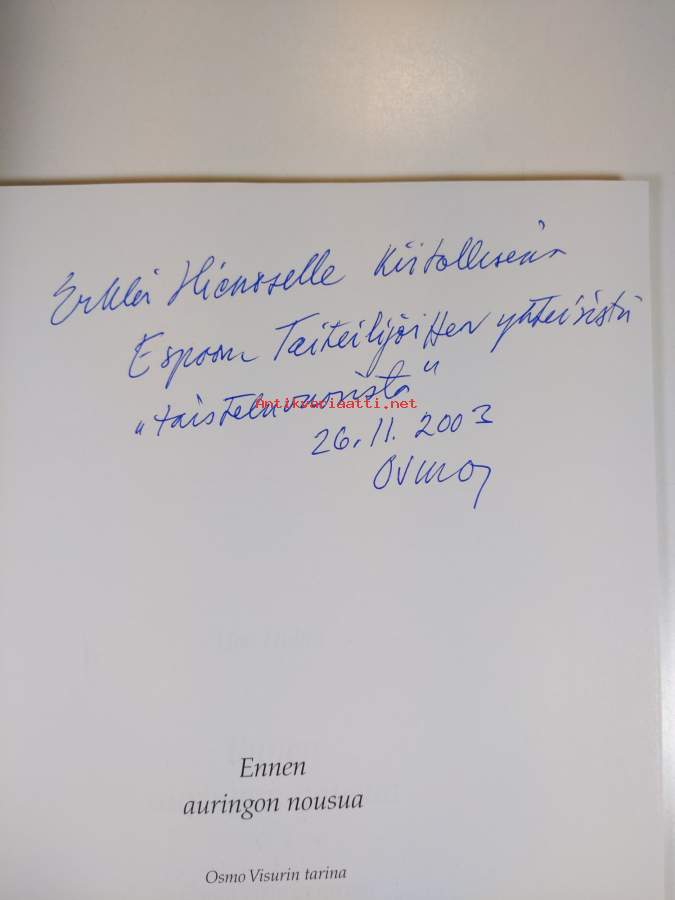 Erkki Hienoselle kiitollisena
Espoon Taiteilijoitten yhteisistä
"taisteluvuosista"
Antikvariaatti.net
26.11.2003
Osmo
Ennen
auringon nousua
Osmo Visurin tarina